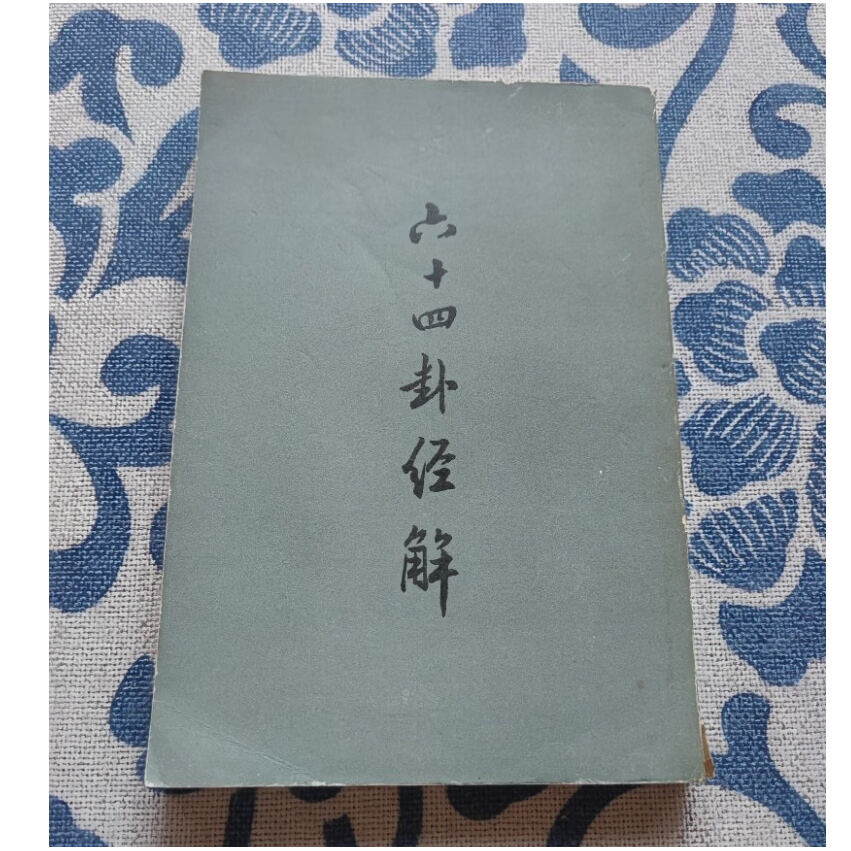 六十四卦经解